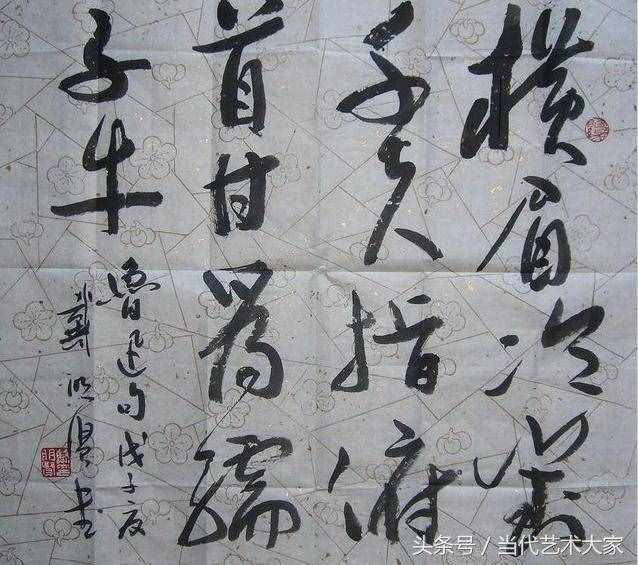 横眉冷對
千夫指俯
首甘為孺
子牛
魯迅句戊子夏
戴明书
头条号／当代艺术大家